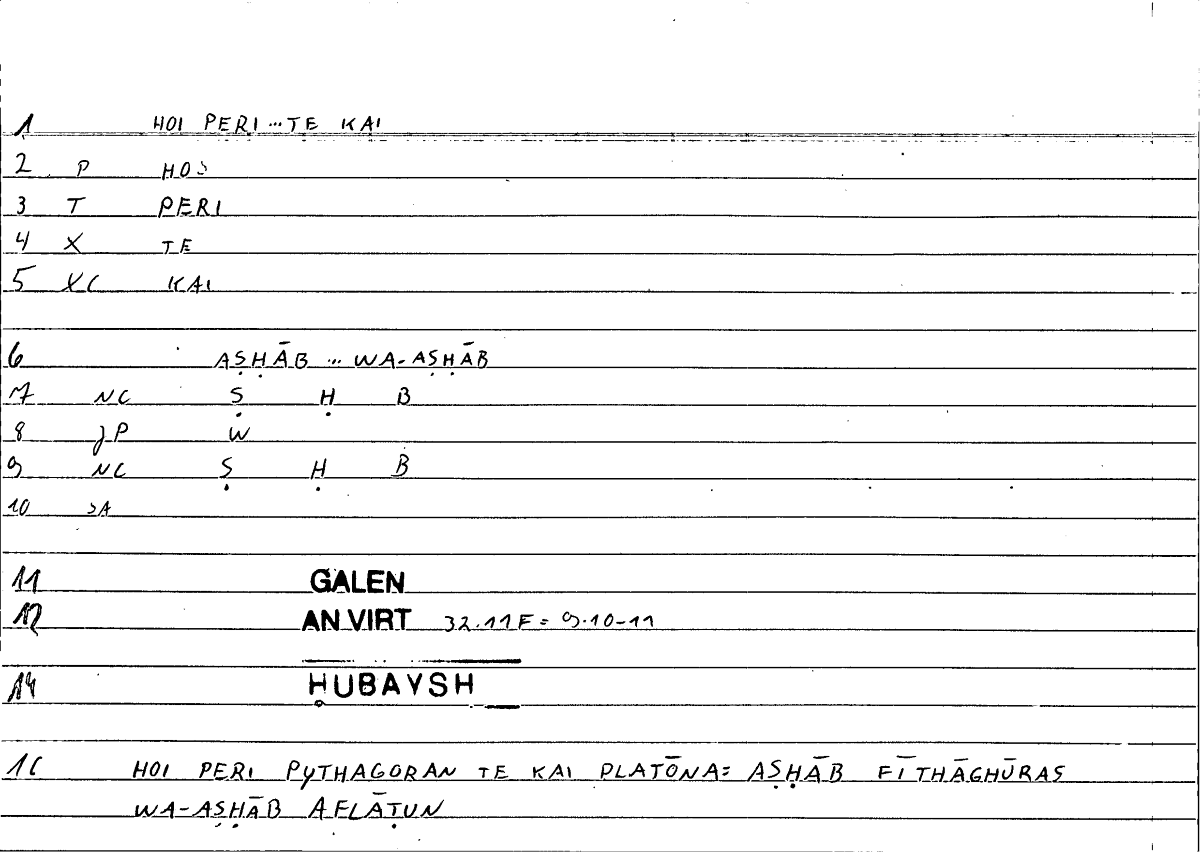 1 HOI PERI ... TE KAI
2 P HOS
3 T PERI
4 X TE
5 XC KAI
6 AṢḤĀB ... WA-AṢḤĀB
7 NC Ṣ Ḥ B
8 JP W
9 NC Ṣ Ḥ B
10 SA
11 GALEN
12 AN VIRT 32.11F = 9.10-11
14 ḤUBAYSH
16 HOI PERI PYTHAGORAN TE KAI PLATŌNA = AṢḤĀB FĪTHĀGHŪRAS
WA-AṢḤĀB AFLĀṬUN